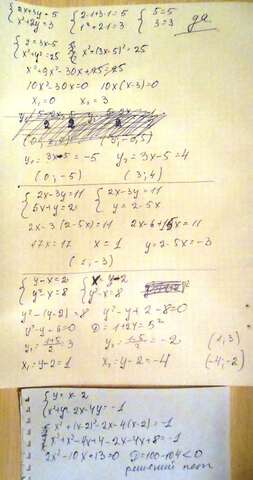 {2x+3y=5 {2·1+3·1=5 {5=5
x²+2y=3 1²+2·1=3 3=3 да
{y=3x-5
x²+y²=25 x²+(3x-5)²=25
x²+9x²-30x+25=25
10x²-30x=0 10x(x-3)=0
x₁=0 x₂=3
y₁=3x-5=-5 y₂=3x-5=4
(0;-5) (3;4)
{2x-3y=11 {2x-3y=11
5x+y=2 y=2-5x
2x-3(2-5x)=11 2x-6+15x=11
17x=17 x=1 y=2-5x=-3
(1;-3)
{y-x=2 {x=y-2
y²-x=8 y²-x=8
y²-(y-2)=8 y²-y+2-8=0
y²-y-6=0 D=1+24=5²
y₁=(1+5)/2=3 y₂=(1-5)/2=-2 (1;3)
x₁=y-2=1 x₂=y-2=-4 (-4;-2)
{y=x-2
x²+y²-2x-4y=-1
x²+(x-2)²-2x-4(x-2)=-1
x²+x²-4x+4-2x-4x+8=-1
2x²-10x+13=0 D=100-104<0
решений нет